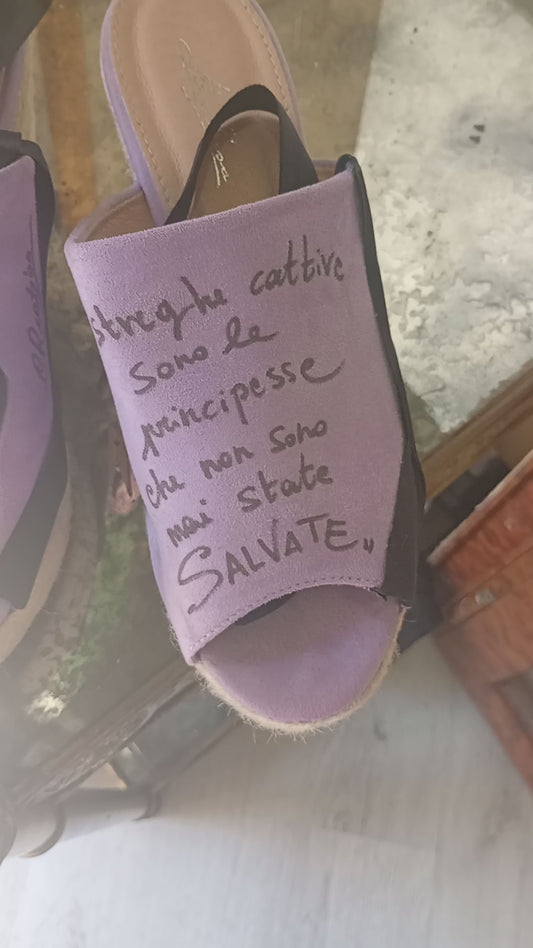 streghe cattive
sono le
principesse
che non sono
mai state
SALVATE"